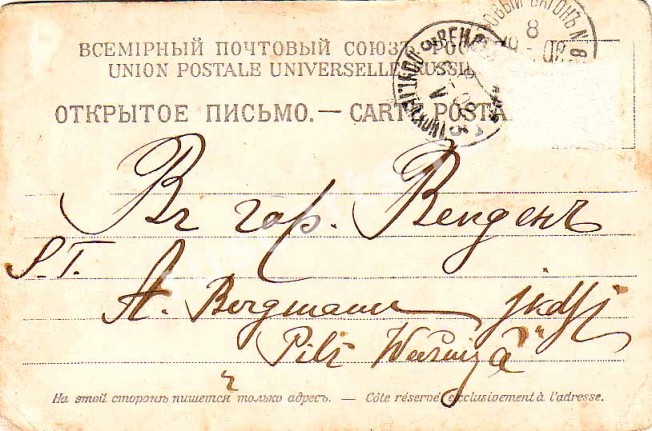 ВСЕМІРНЫЙ ПОЧТОВЫЙ СОЮЗЪ. РОС
UNION POSTALE UNIVERSELLE. RUSSIE
ОТКРЫТОЕ ПИСЬМО. — CARTE POSTA
8
Въ гор. Венденъ
S.T.
A. Bergmann jkdze
Pils
На этой сторонѣ пишется только адресъ. — Côte réservé exclusivement à l'adresse.